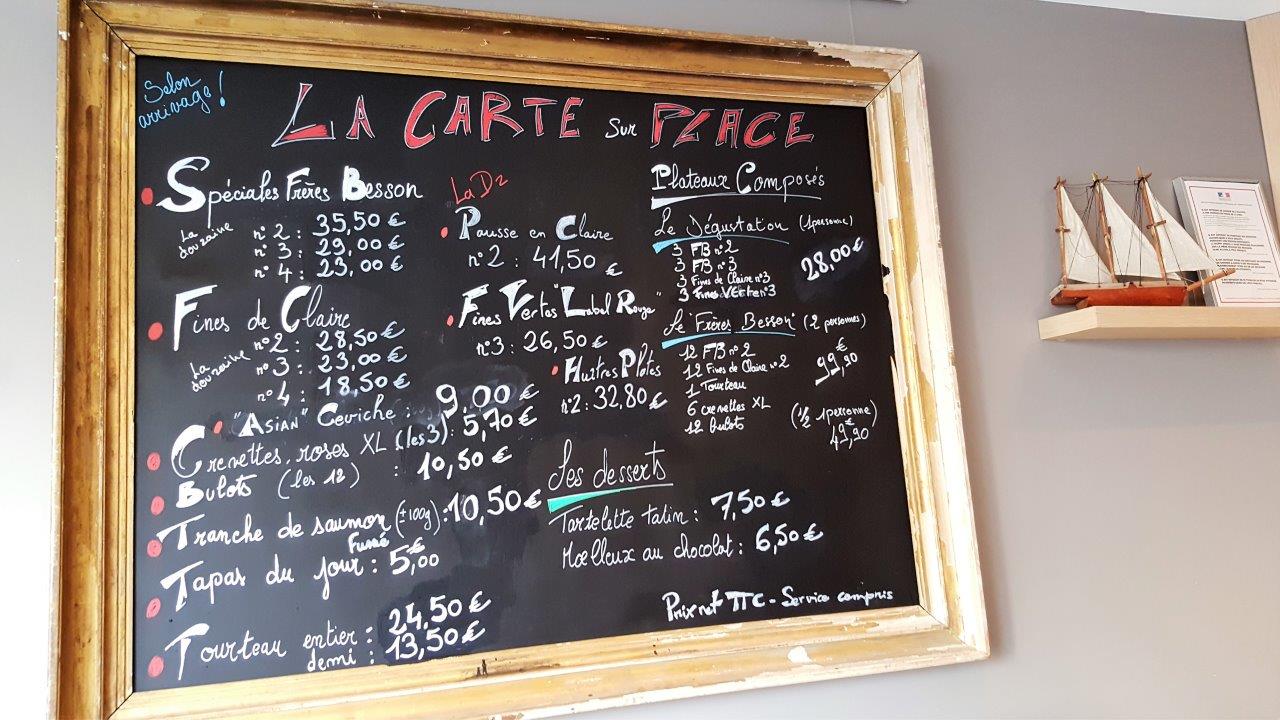 Selon
arrivage !
LA CARTE sur PLACE
Spéciales Frères Besson
La douzaine
n°2 : 35,50 €
n°3 : 29,00 €
n°4 : 23,00 €
Fines de Claire
La douzaine
n°2 : 28,50 €
n°3 : 23,00 €
n°4 : 18,50 €
"ASIAN" Ceviche : 9,00 €
Crevettes roses XL (les 3) : 5,70 €
Bulots (les 12) : 10,50 €
Tranche de saumon (±100g) : 10,50 €
Fumé
Tapas du jour : 5,00 €
Tourteau entier : 24,50 €
demi : 13,50 €
La Dz
Pousse en Claire
n°2 : 41,50 €
Fines Vertes Label Rouge
n°3 : 26,50 €
Huîtres Plates
n°2 : 32,80 €
Les desserts
Tartelette tatin : 7,50 €
Moelleux au chocolat : 6,50 €
Plateaux Composés
Le Dégustation (1 personne)
28,00 €
3 FB n°2
3 FB n°3
3 Fines de Claire n°3
3 Fines Verte n°3
Le "Frères Besson" (2 personnes)
99,90 €
12 FB n°2
12 Fines de Claire n°2
1 Tourteau
6 crevettes XL
12 bulots
(1/2 1 personne)
49,90 €
Prix net TTC - Service compris